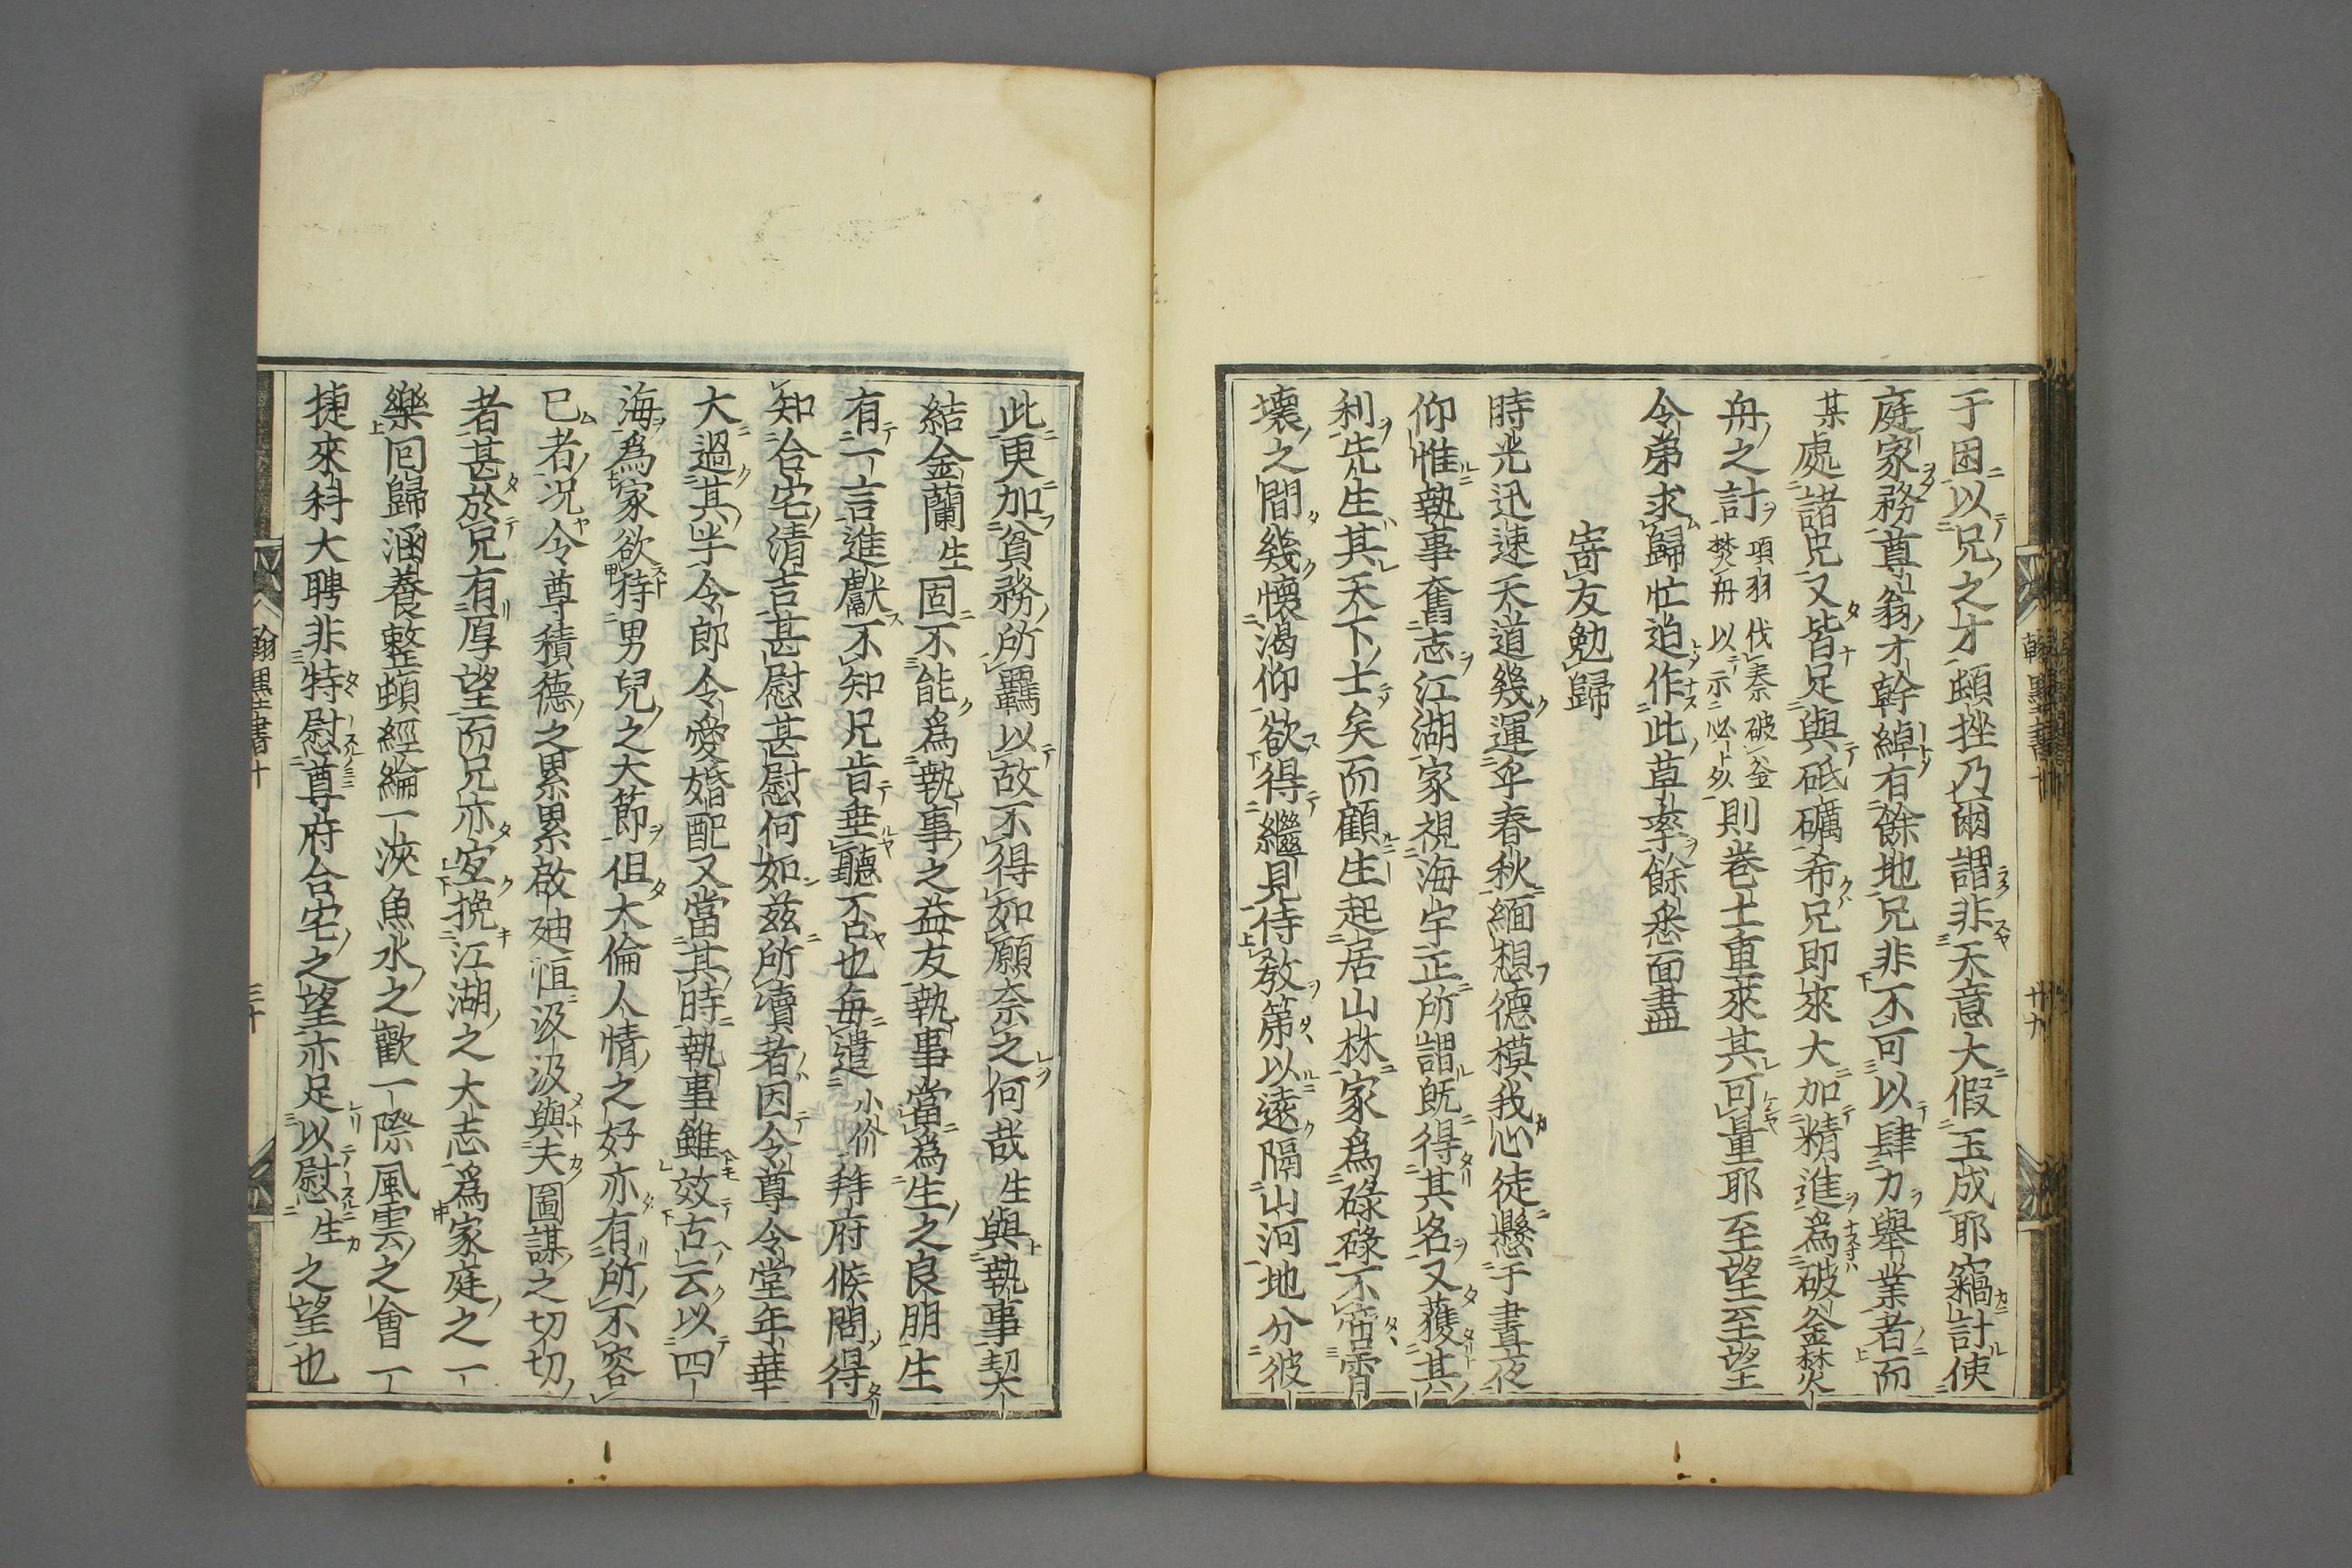 于困以兄之才頗挫乃爾謂非天意大假玉成耶竊計使
庭家務尊翁才幹綽有餘地兄非不可以肆力舉業者而
某處諸兄又皆足與砥礪希兄即來大加精進為破釜焚
舟之計項羽伐秦破釜焚舟以示必死則卷土重來其可量耶至望至望
令弟求歸忙迫作此草率餘悉面盡
寄友勉歸
時光迅速天道幾運乎春秋緬想德模我心徒懸于晝夜
仰惟執事奮志江湖家視海宇正所謂既得其名又獲其
利先生其天下士矣而顧生起居山林家為碌碌不啻霄
壤之間幾懷渴仰欲得繼見侍教第以遠隔山河地分彼
此更加貧務所羈以故不得如願奈之何哉生與執事契
結金蘭生固不能為執事之益友執事當為生之良朋生
有一言進獻不知兄肯垂聽否也每遣小价拜府候問得
知合宅清吉甚慰甚慰何如茲所瀆者因令尊令堂年華
大過其半令郎令愛婚配又當其時執事雖效古云以四
海為家欲特男兒之大節但大倫人情之好亦有所不容
已者況令尊積德之累累啟迪恒汲汲與夫圖謀之切切
者甚於兄有厚望而兄亦宜挽江湖之大志為家庭之一
樂回歸涵養整頓經綸一浹魚水之歡一際風雲之會一
捷來科大聘非特慰尊府合宅之望亦足以慰生之望也
翰墨書十
廿九
翰墨書十
三十